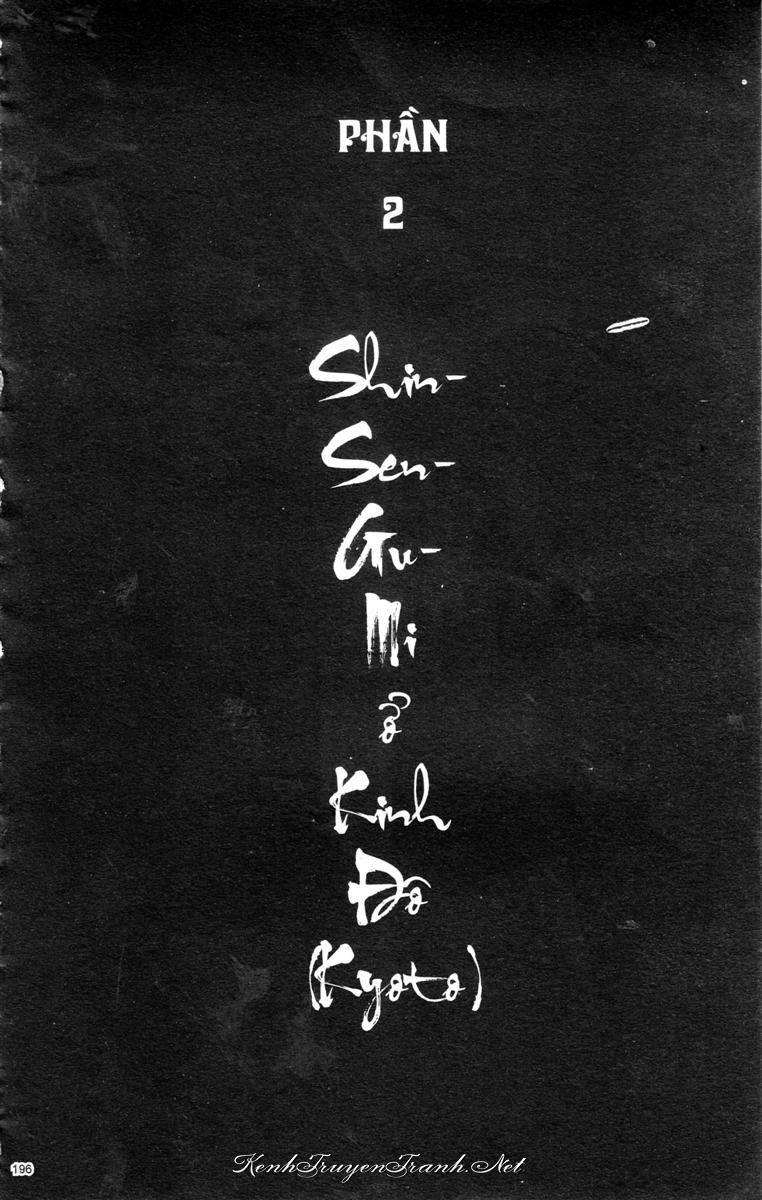 PHẦN
2
Shin-
Sen-
Gu-
Mi
ở
Kinh
Đô
(Kyoto)
196
KenhTruyenTranh.Net